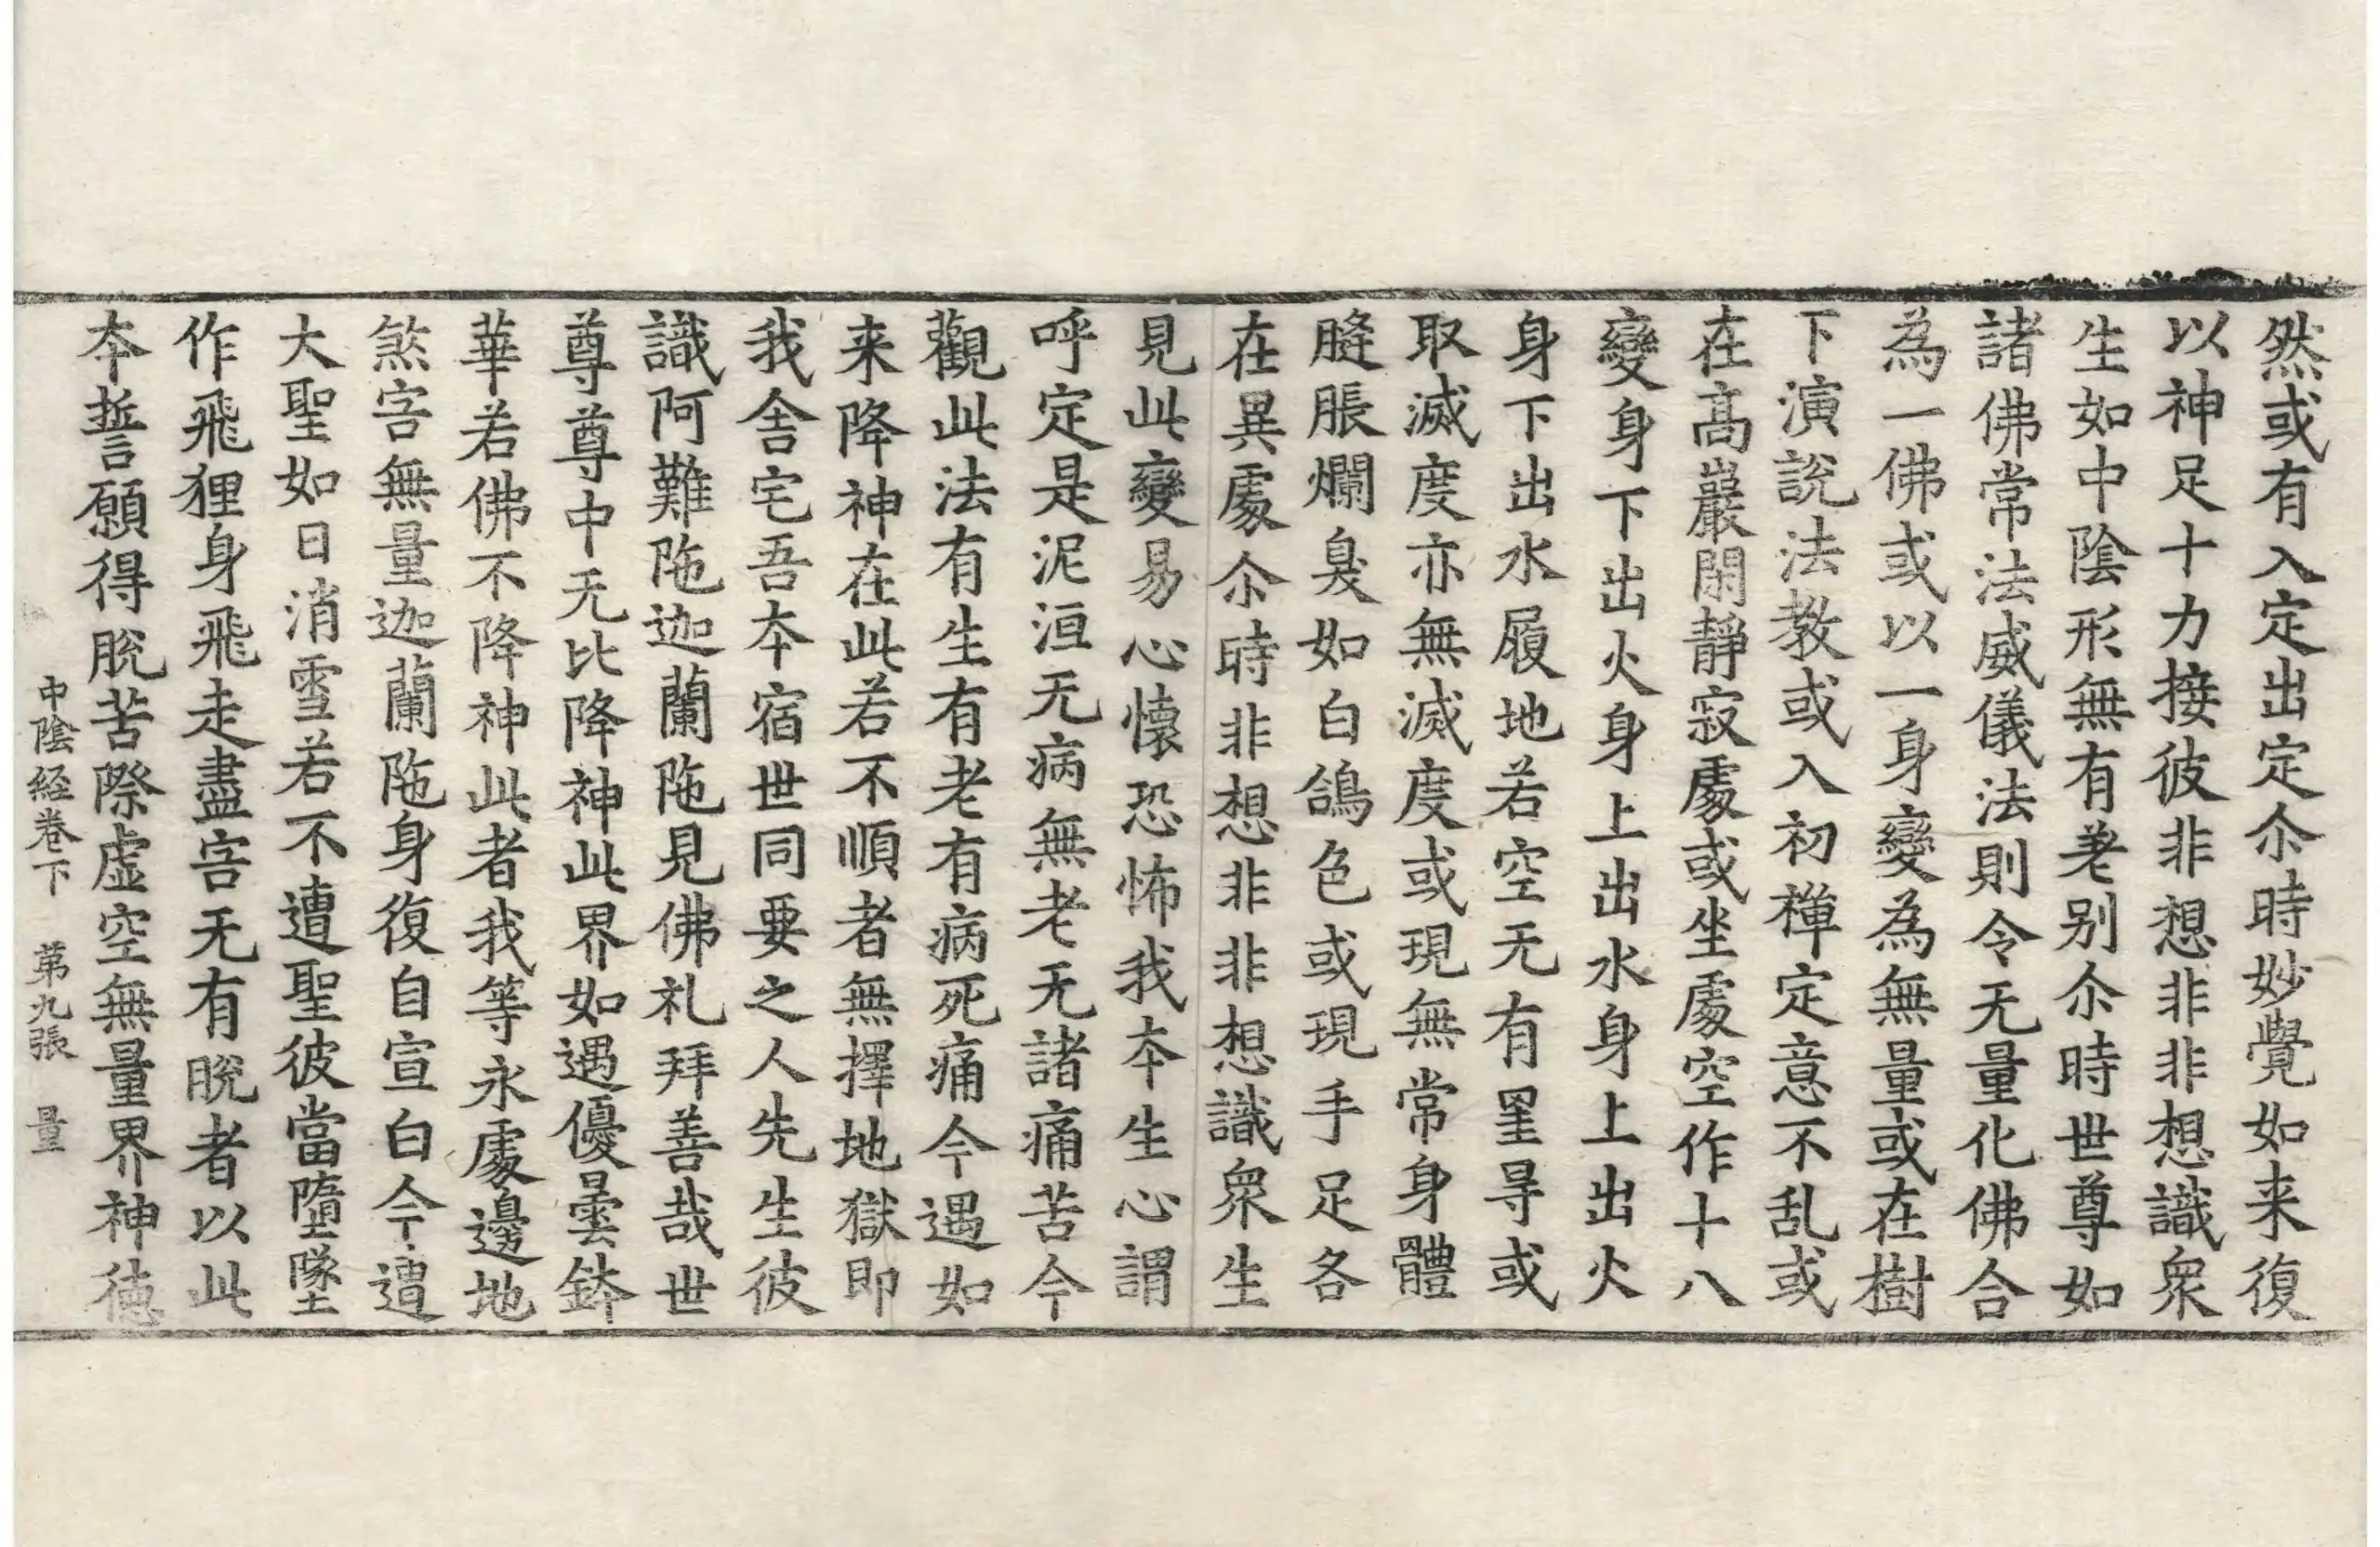 然或有入定出定尒時妙覺如来復
以神足十力接彼非想非非想識衆
生如中陰形無有差别尒時世尊如
諸佛常法威儀法則令无量化佛合
為一佛或以一身變為無量或在樹
下演說法教或入初禪定意不乱或
在髙巖閑靜寂處或坐處空作十八
變身下出火身上出水身上出火
身下出水履地若空无有罣㝵或
取滅度亦無滅度或現無常身體
膖脹爛臭如白鴿色或現手足各
在異處尒時非想非非想識衆生
見此變易心懷恐怖我夲生心謂
呼定是泥洹无病無老无諸痛苦今
觀此法有生有老有病死痛今遇如
来降神在此若不順者無擇地獄即
我舍宅吾夲宿世同要之人先生彼
識阿難陁迦蘭陁見佛礼拜善哉世
尊尊中无比降神此界如遇優曇鉢
華若佛不降神此者我等永處邊地
煞害無量迦蘭陁身復自宣白今遭
大聖如日消雪若不遭聖彼當墮墜
作飛狸身飛走盡害无有脫者以此
夲誓願得脫苦際虛空無量界神德
中陰経卷下　第九張　量